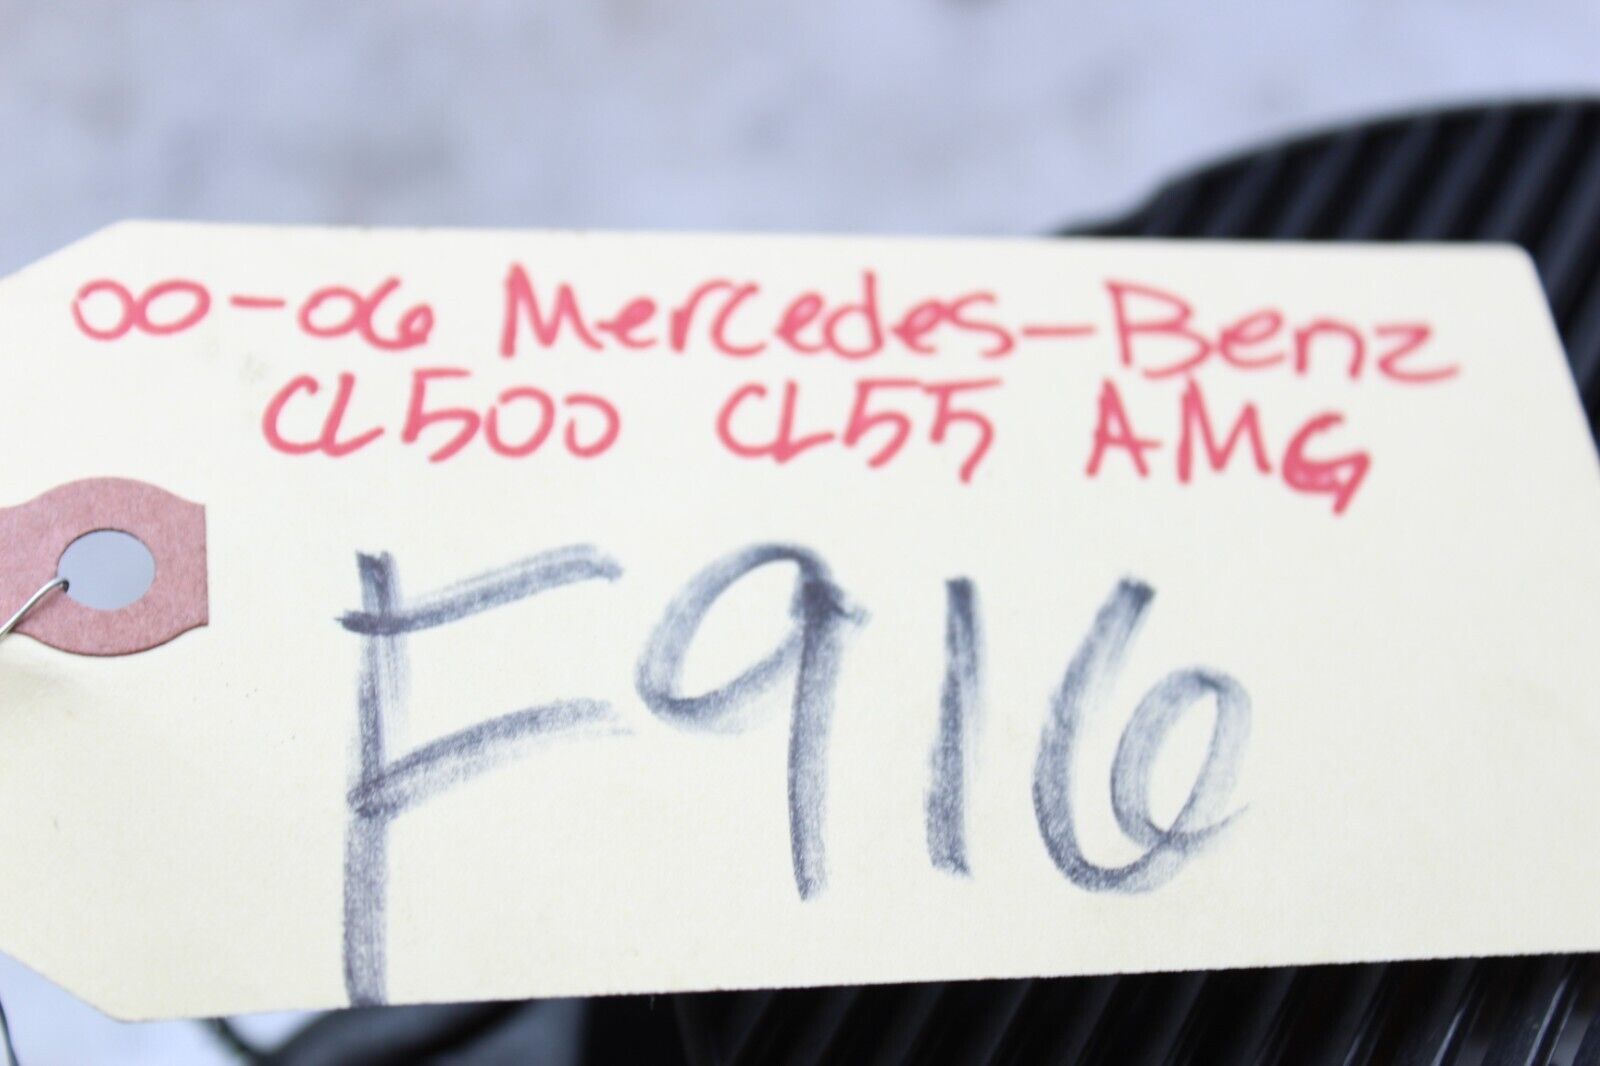 00-06 Mercedes-Benz
CL500 CL55 AMG
F916